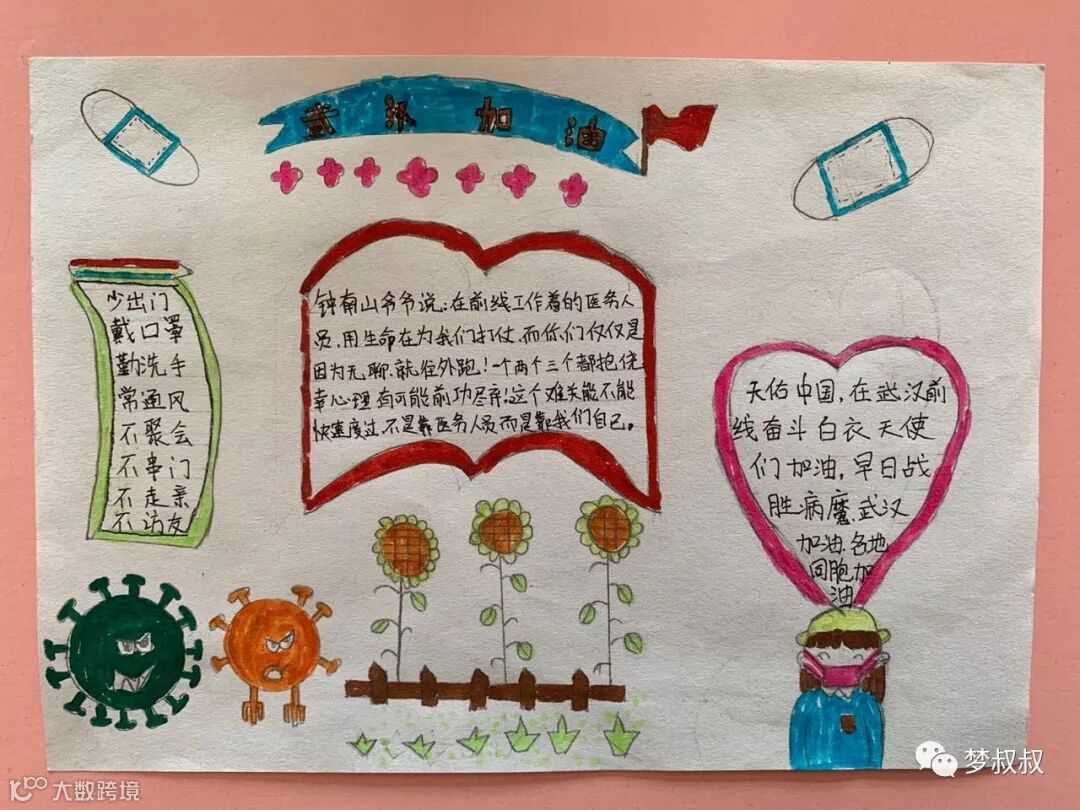 武汉加油
少出门
戴口罩
勤洗手
常通风
不聚会
不串门
不走亲
不访友
钟南山爷爷说:在前线工作着的医务人
员,用生命在为我们打仗,而你们仅仅是
因为无聊,就往外跑!一个两个三个都抱侥
幸心理,有可能前功尽弃!这个难关能不能
快速度过,不是靠医务人员而是靠我们自己。
天佑中国,在武汉前
线奋斗白衣天使
们加油,早日战
胜病魔,武汉
加油,各地
同胞加
油
梦叔叔
大数跨境